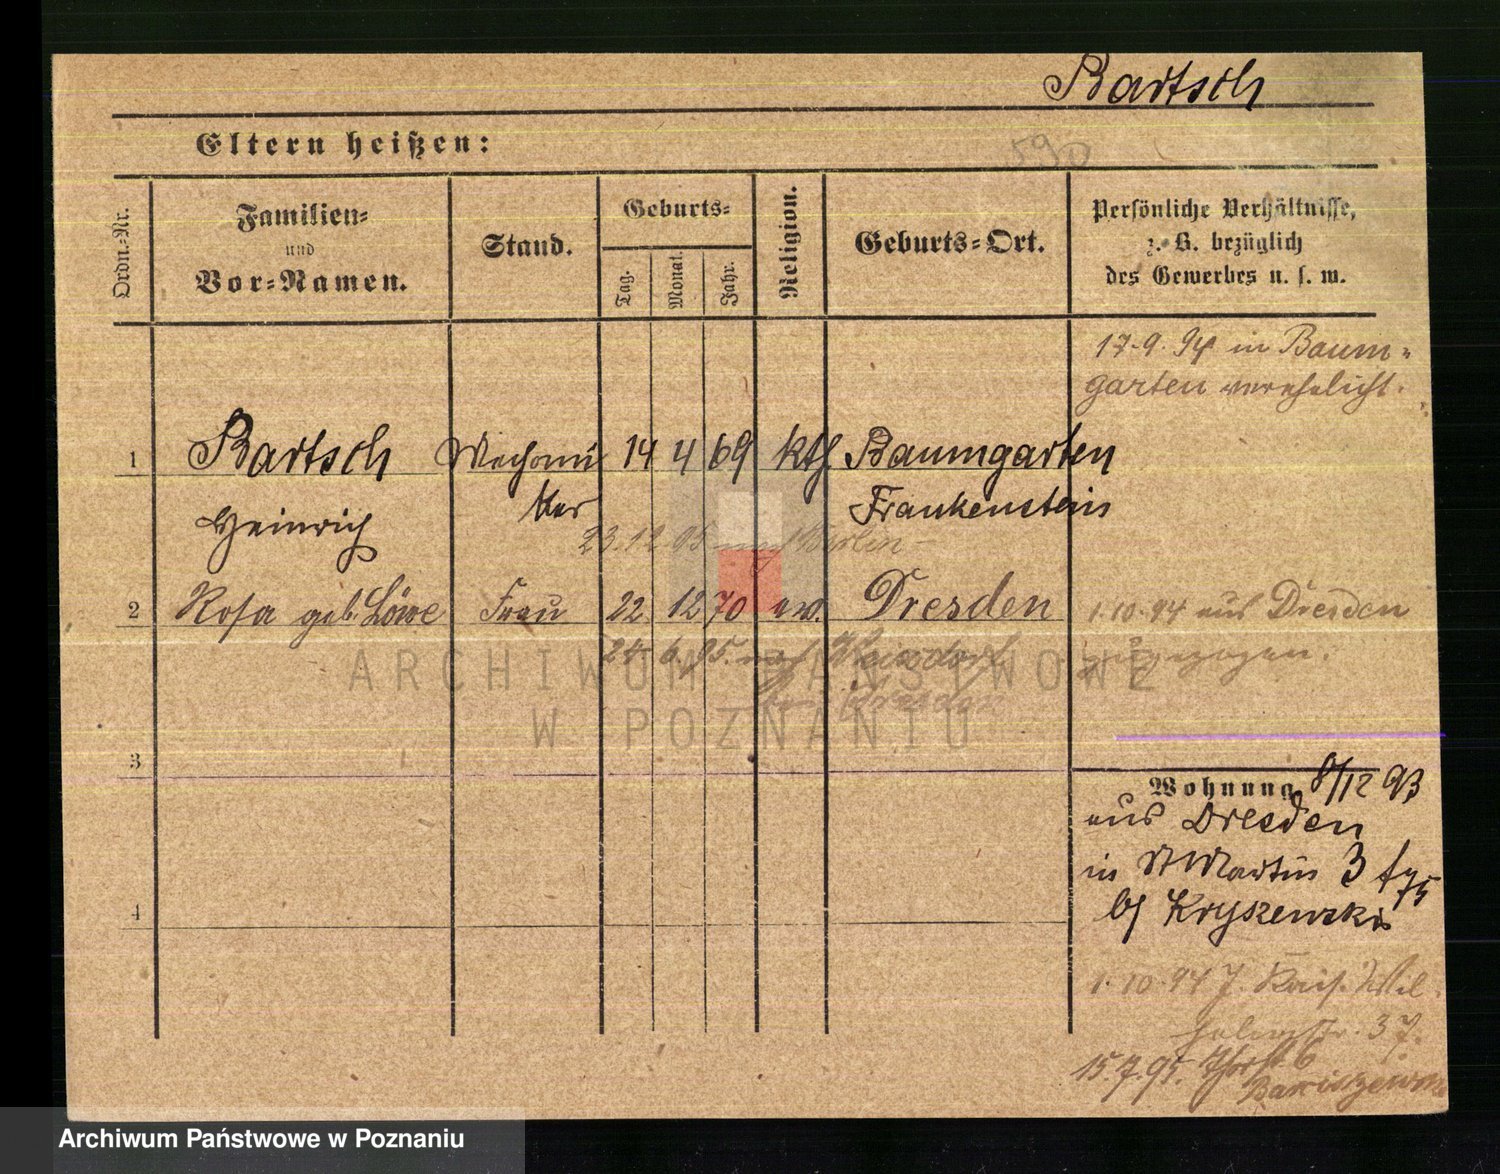 Bartsch
Eltern heißen:
590
Ordn.-Nr.
Familien-
und
Vor-Namen.
Stand.
Geburts-
Tag.
Monat.
Jahr.
Religion.
Geburts-Ort.
Persönliche Verhältnisse,
z. B. bezüglich
des Gewerbes u. s. w.
17.9.94 in Baum-
garten verehelicht.
1 Bartsch 14 4 69 kth. Baumgarten
Heinrich Frankenstein
23.12.95 nach Berlin
2 Rosa geb. Löwe Frau 22. 12 70 ev. Dresden
1.10.94 aus Dresden
zugezogen.
24.6.95. nach
Dresden
3
Wohnung 8/12 93
aus Dresden
in St Martin 3
b/ Kryszewski
4
1.10.94 Kais. Wil-
helmstr. 37.
15.7.95. 6
ARCHIWUM PAŃSTWOWE
W POZNANIU
Archiwum Państwowe w Poznaniu